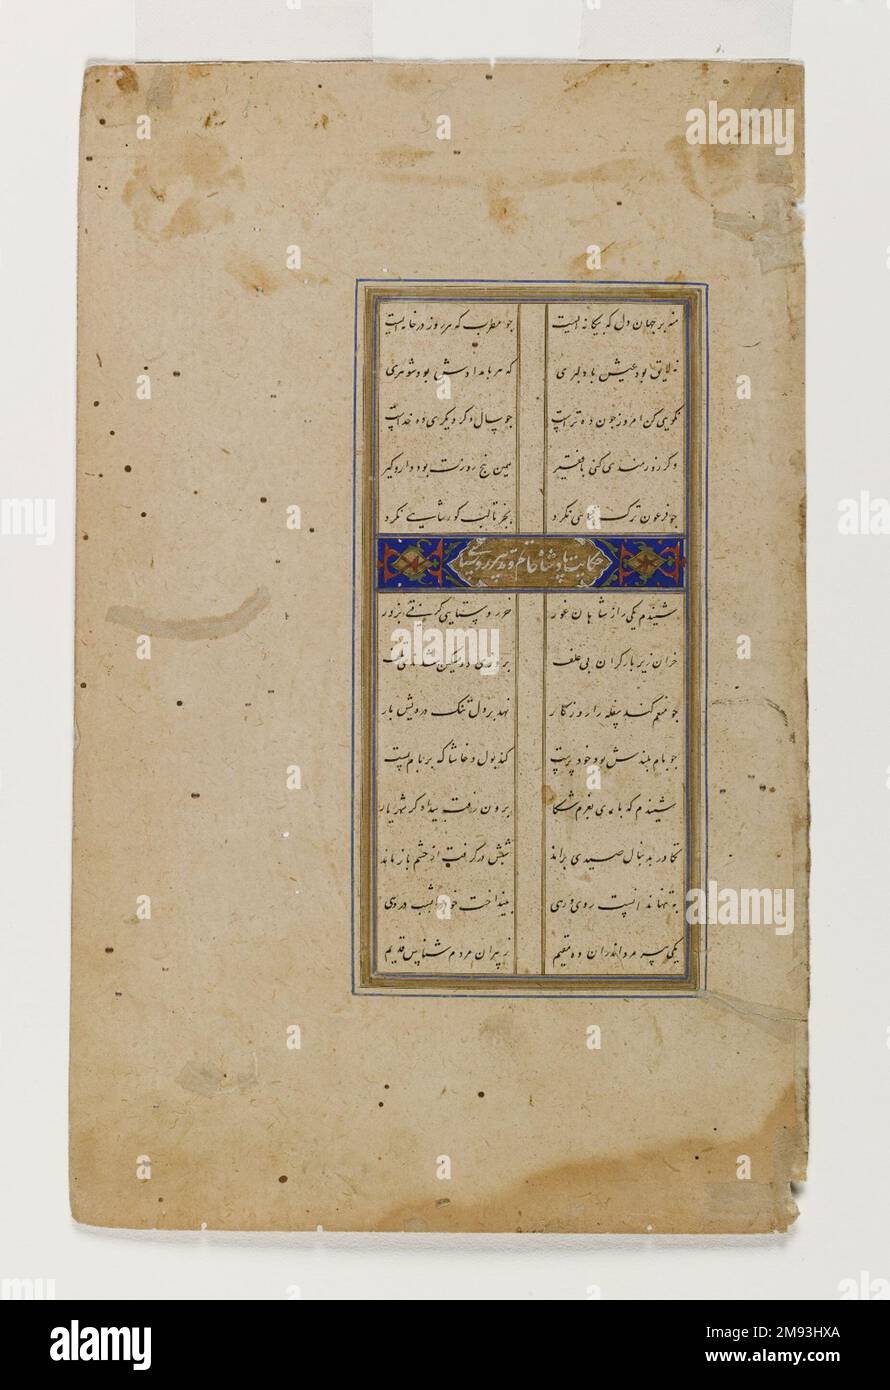 منه بر جهان دل که بیکانه ایست جو مطرب که هر روز در خانه ایست
نه لایق بود عیش با دلبری که هر بامدادش بود شوهری
نکویی کن امروز جون ده تراست جو سال دکر دیکری ده خداست
وکر زورمندی کنی با فقیر همین پنج روزت بود دار و کیر
جو فرعون ترک تباهی نکرد بجز تا لب کور شاهی نکرد
حکایت پادشاه ظالم و پیر روستایی
شنیدم یکی را ز شاهان غور خر روستایی کرفتی بزور
خران زیر بار کران بی علف بروزی دو مسکین شدندی تلف
جو منعم کند سفله را روزکار نهد بر دل تنک درویش بار
جو بام بلندش بود خودپرست کند بول و خاشاک بر بام پست
شنیدم که باری بعزم شکار برون رفت بیدادکر شهریار
تکاور بدنبال صیدی براند شبش درکرفت از حشم بازماند
بتنها ندانست روی و رهی بینداخت خود شب در دهی
یکی پیر مرد اندران ده مقیم ز پیران مردم شناس قدیم
alamy
Image ID: 2M93HXA
www.alamy.com